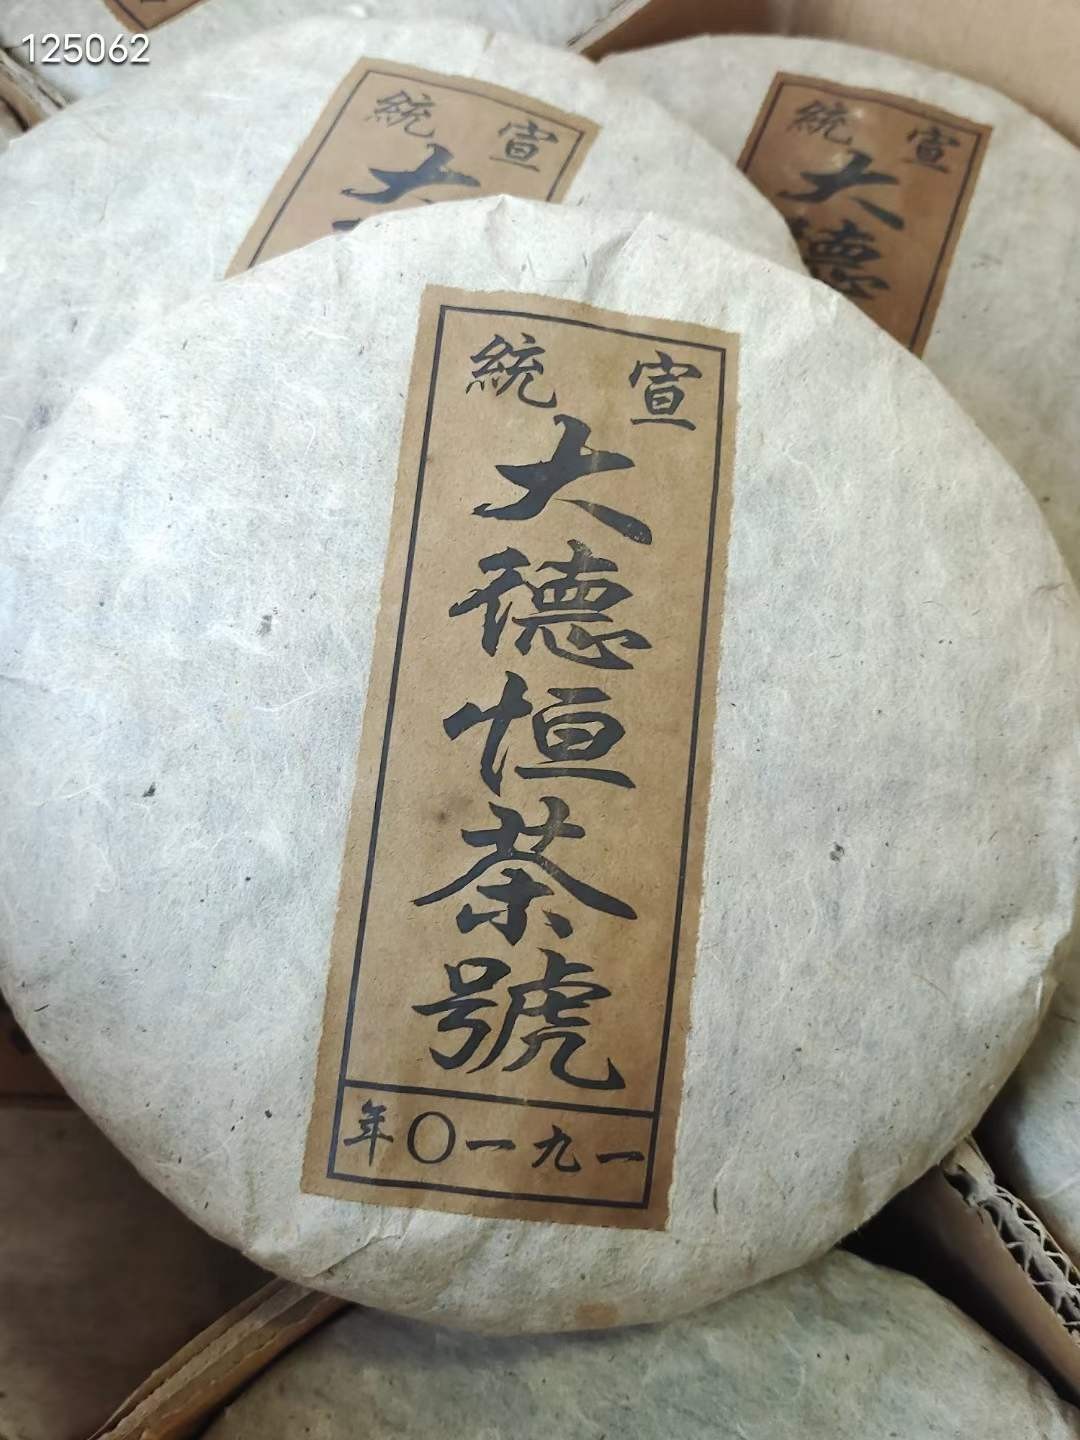 125062
宣統
大德恒茶號
一九一〇年
宣統
大
宣統
大德